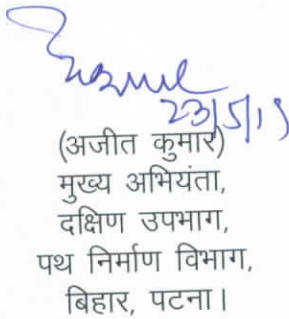 23/5/19
(अजीत कुमार)
मुख्य अभियंता,
दक्षिण उपभाग,
पथ निर्माण विभाग,
बिहार, पटना।